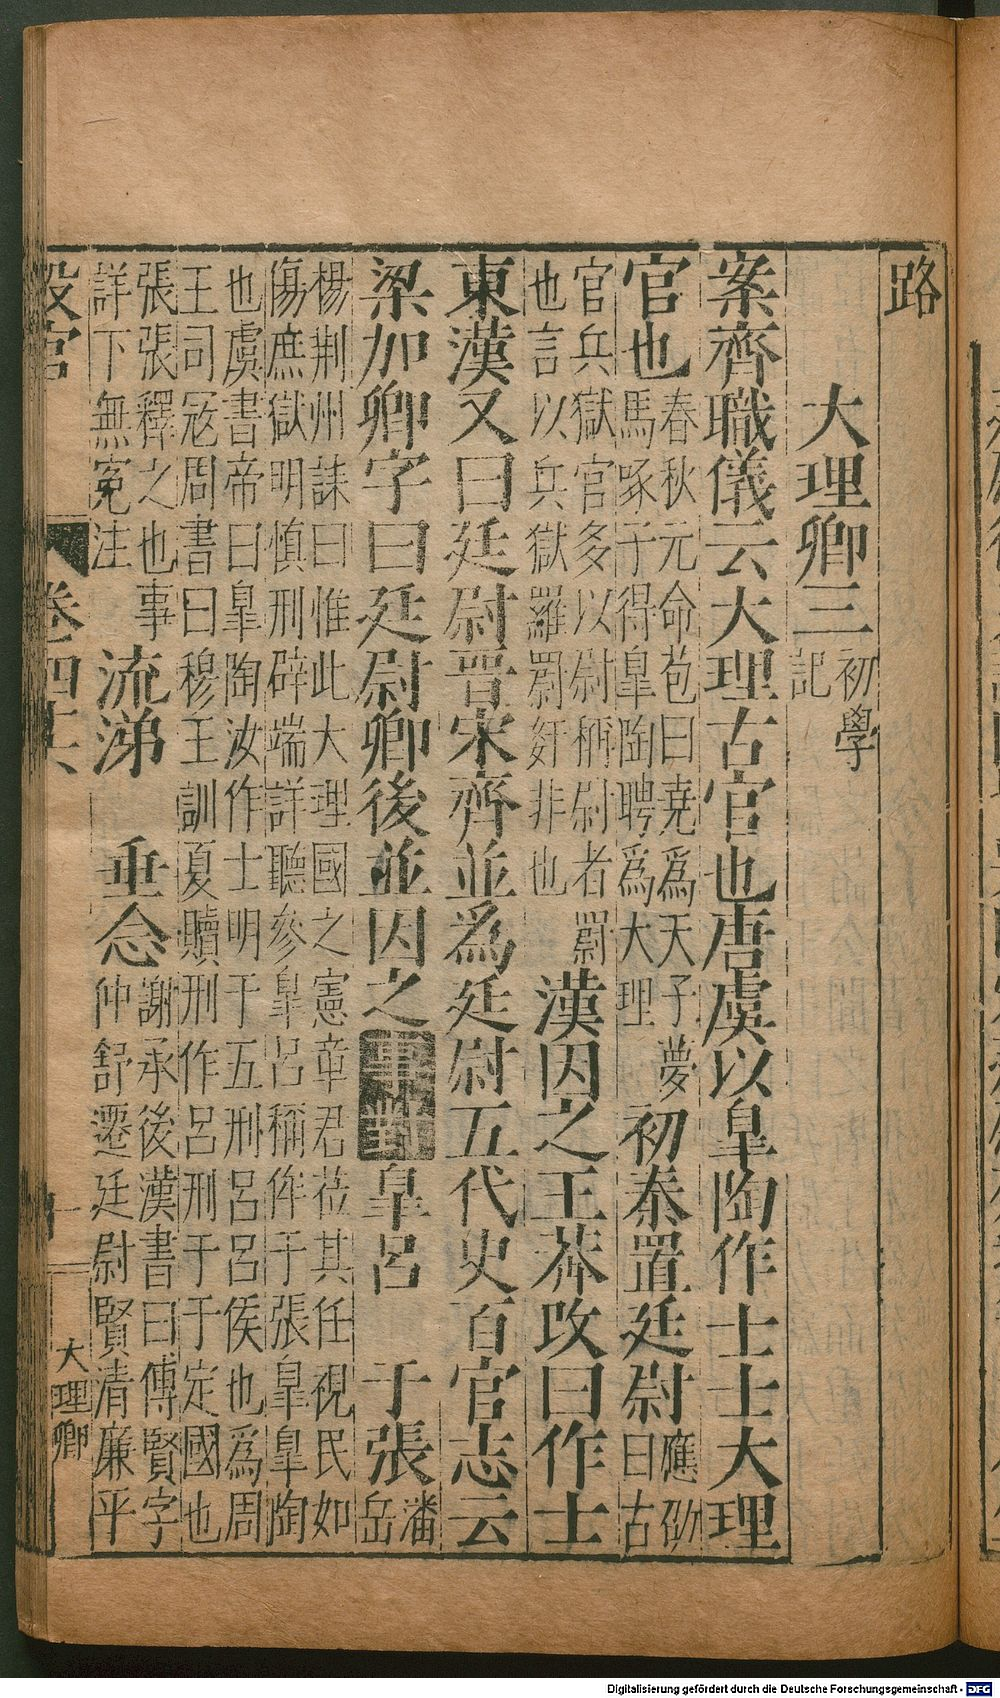 路
大理卿三
初學
記
案齊職儀云大理古官也唐虞以皐陶作士士大理
官也
春秋元命苞曰堯爲天子夢
馬啄子得皐陶聘爲大理
初秦置廷尉
應劭
曰古
官兵獄官多以尉柄尉者罻
也言以兵獄羅罻奸非也
漢因之王莽改曰作士
東漢又曰廷尉晋宋齊並爲廷尉五代史百官志云
梁加卿字曰廷尉卿後並因之事對皐呂 于張
潘
岳
楊荆州誄曰惟此大理國之憲章君莅其任視民如
傷庶獄明慎刑辟端詳聽參皐呂稱侔于張皐皐陶
也虞書帝曰皐陶汝作士明于五刑呂呂侯也爲周
王司寇周書曰穆王訓夏贖刑作呂刑于于定國也
張張釋之也事
詳下無寃注
流涕 垂念
謝承後漢書曰傅賢字
仲舒遷廷尉賢清廉平
設官 卷四十六 大理卿
Digitalisierung gefördert durch die Deutsche Forschungsgemeinschaft - DFG